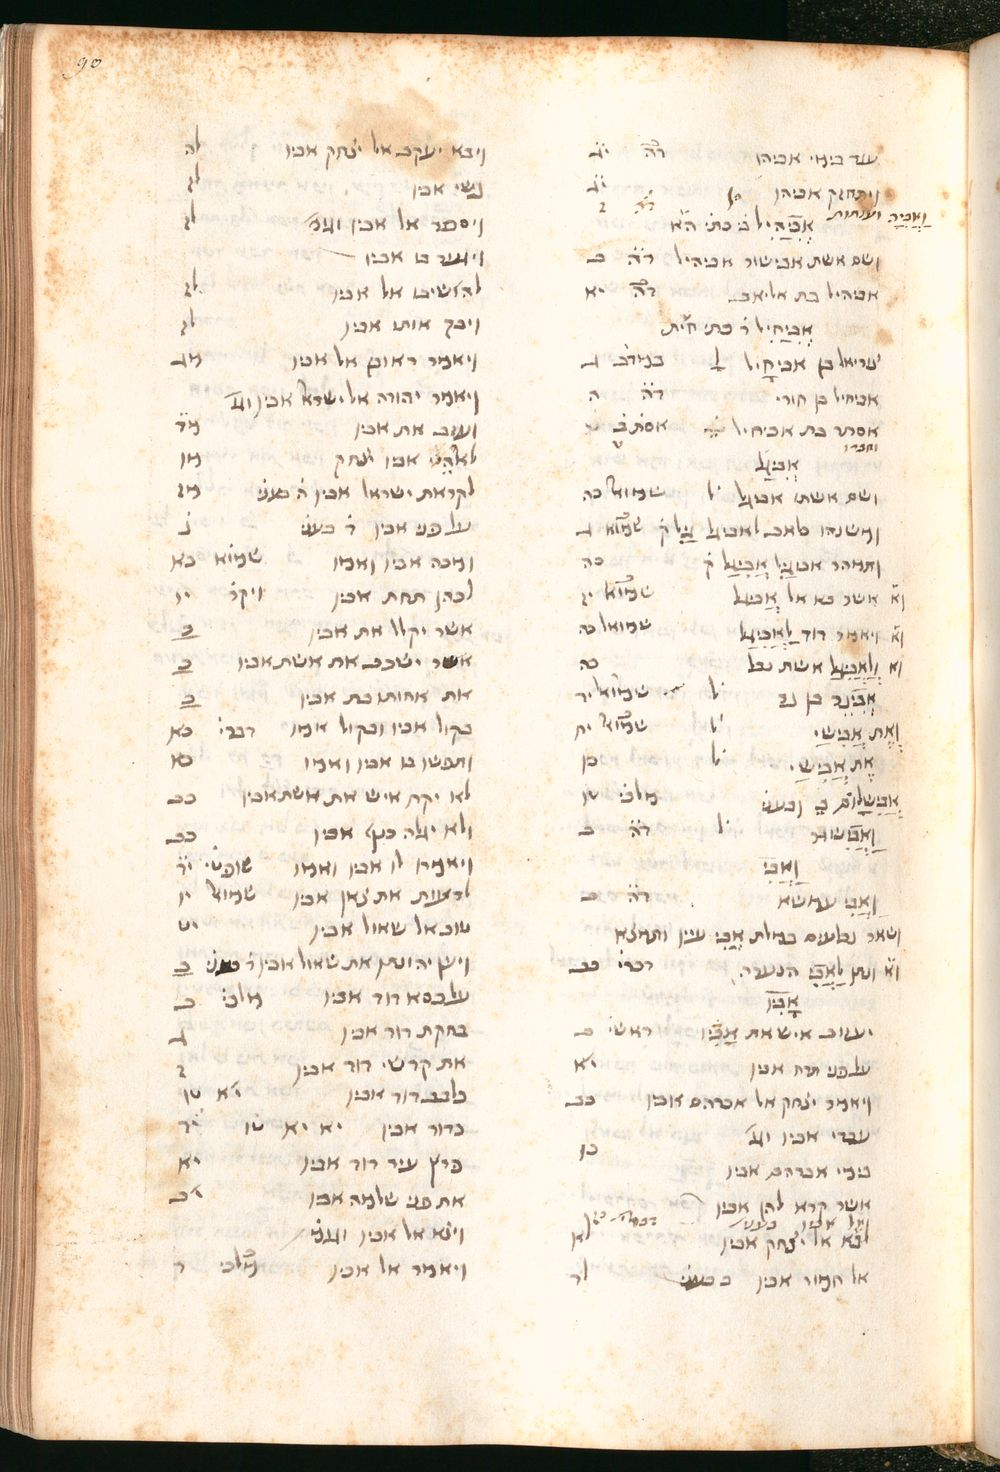 90
עוד בימי אביהו ד״ה י״ג
ויתחזק אביהו י״ג
וַאֲבִיָה וענתות ד״ה
אֲבִיהַיִל ב׳ כתי׳ ה״א
ושם אשת אבישור אביהיל ד״ה ב
אביהיל בת אליאב ד״ה יא
אֲבִיחַיִל ד׳ כתי׳ חי״ת
צוריאל בן אביחָיל במדב׳ ג
אביחיל בן חורי ד״ה ה
אסתר בת אביחיל אסת׳
אֲבִיגַל
ושם אשתו אביגל שמואל כה
ותמהר אביגיל אֲבִיגַל ק׳ כה
וא״ אשר בא אל אֲבִיגַל שמו״א יז
וא״ ויאמר דוד לַאֲבִיגַל שמואל כה
וא״ וְלַאֲבִיגַל אשת נבל כה
אֲבִינֵר בן נר שמואל יד
וְאֶת אֲבִישַי שמואל יח
אֶת אֲבִישַי כו
אֲבִישָלוֹם ב׳ וכענ׳ מלכי׳ טו
וַאֲבִישוּר ד״ה ב
וַאֲבִי
וַאֲבִי עמשא ד״ה ב
ושאר נבלעים במלת אֲבִי עיין ותמצא
וא״ ונתן לַאֲבִי הנערה דברי׳ כב
אָבִיו
יעזוב איש את אָבִיו ראשי׳ ב
על פני תרח אביו י״א
ויאמר יצחק אל אברהם אביו כב
עבדי אביו וגו׳ כו
בימי אברהם אביו
אשר קרא להן אביו
לבא אל יצחק אביו לא
אל חמור אביו ב בענ׳ לד
ויבא יעקב אל יצחק אביו לה
נשי אביו לז
ויספר אל אביו וגו׳ לז
ויגער בו אביו
להשיבו אל אביו לז
ויבך אותו אביו לז
ויאמר ראובן אל אביו מב
ויאמר יהודה אל ישראל אביו וגו׳
ועזב את אביו מד
לאלהי אביו יצחק מו
לקראת ישראל אביו ה׳ בענ׳ מו
על פני אביו ד׳ בענ׳ נ
ומכה אביו ואמו שמות כא
לכהן תחת אביו ויקר׳ יו
אשר יקלל את אביו כ
אשר ישכב את אשת אביו כ
את אחותו בת אביו כ
בקול אביו ובקול אמו דברי׳ כא
ותפשו בו אביו ואמו כא
לא יקח איש את אשת אביו כב
ולא יגלה כנף אביו כב
ויאמרו לו אביו ואמו שופטי׳ יד
לרעות את צאן אביו שמואל יז
טוב אל שאול אביו יט
ויען יהונתן את שאול אביו ד׳ בענ׳ כ
על כסא דוד אביו מלכי׳ ב
בחקת דוד אביו ג
את קדשי דוד אביו ז
כלבב דוד אביו י״א טו
כדוד אביו יא יא טו י״ד
פרץ עיר דוד אביו יא
את פני שלמה אביו יב
ויצא אל אביו וגו׳
ויאמר אל אביו מלכי׳ ד